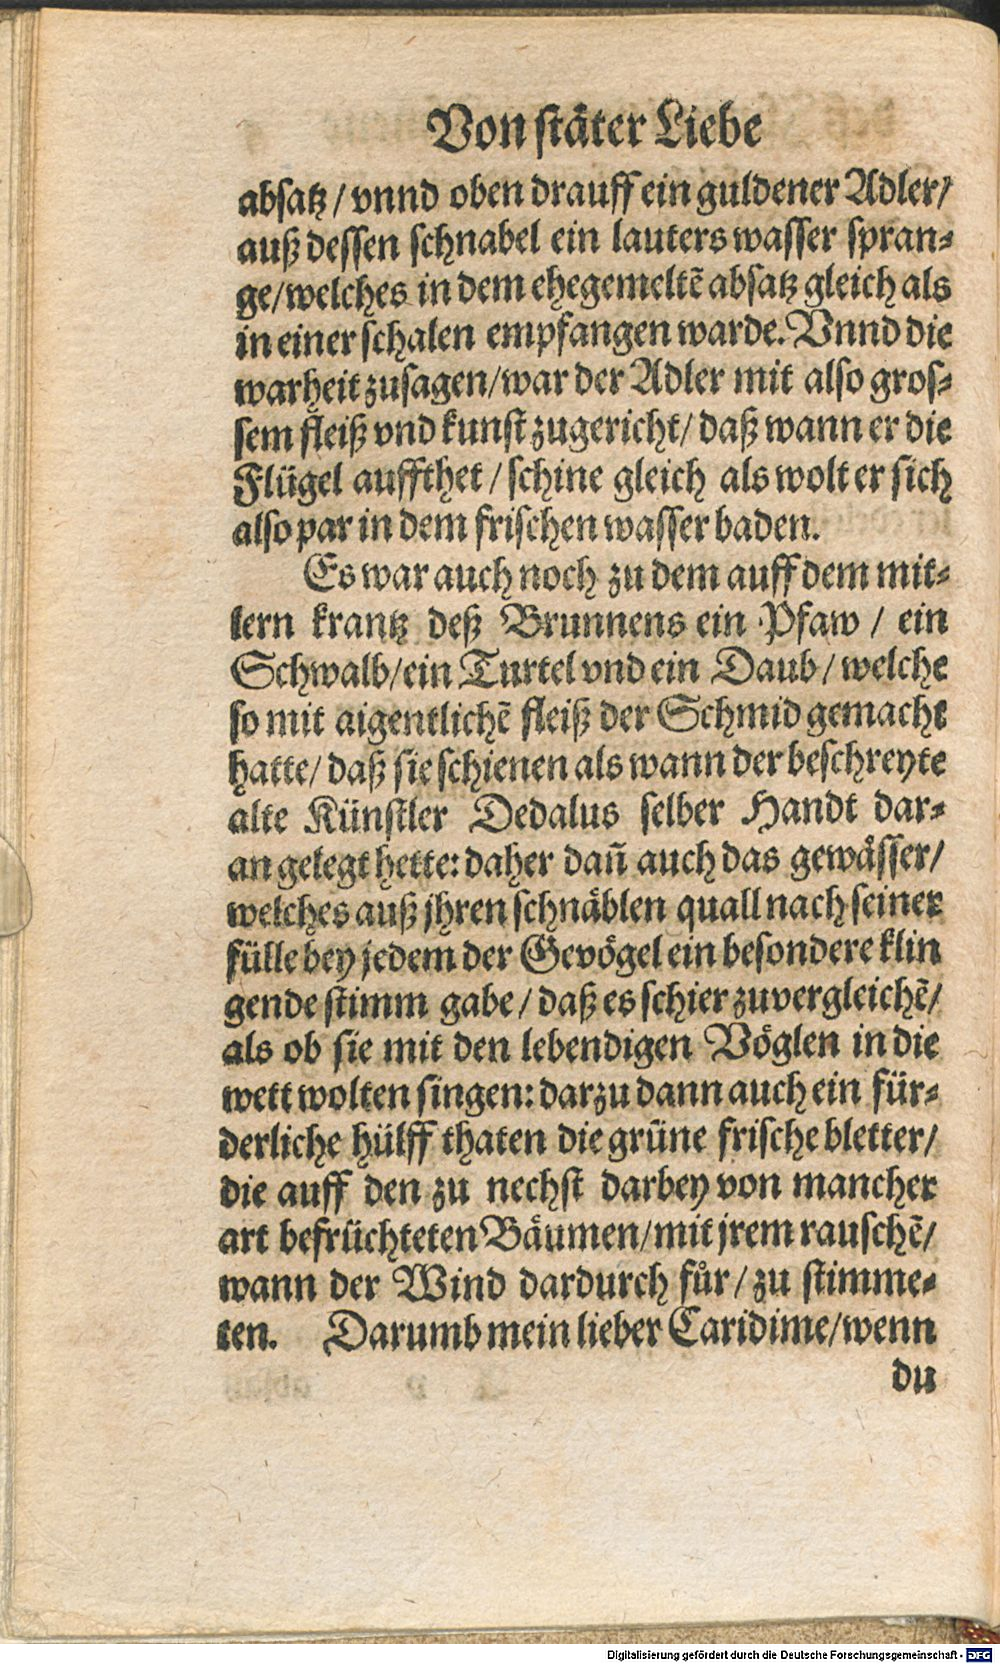 Von stäter Liebe
absatz / vnnd oben drauff ein guldener Adler/
auß dessen schnabel ein lauters wasser spran-
ge/welches in dem ehegemeltẽ absatz gleich als
in einer schalen empfangen warde. Vnnd die
warheit zusagen/war der Adler mit also gros-
sem fleiß vnd kunst zugericht/ daß wann er die
Flügel auffthet / schine gleich als wolt er sich
also par in dem frischen wasser baden.
Es war auch noch zu dem auff dem mit-
lern krantz deß Brunnens ein Pfaw / ein
Schwalb/ein Turtel vnd ein Daub/ welche
so mit aigentlichẽ fleiß der Schmid gemacht
hatte/ daß sie schienen als wann der beschreyte
alte Künstler Dedalus selber Handt dar-
an gelegt hette: daher dañ auch das gewässer/
welches auß jhren schnäblen quall nach seiner
fülle bey jedem der Gevögel ein besondere klin
gende stimm gabe/ daß es schier zuvergleichẽ/
als ob sie mit den lebendigen Vöglen in die
wett wolten singen: darzu dann auch ein für-
derliche hülff thaten die grüne frische bletter/
die auff den zu nechst darbey von mancher
art befrüchteten Bäumen/mit jrem rauschẽ/
wann der Wind dardurch fůr/ zu stimme-
ten. Darumb mein lieber Caridime/wenn
du
Digitalisierung gefördert durch die Deutsche Forschungsgemeinschaft - DFG